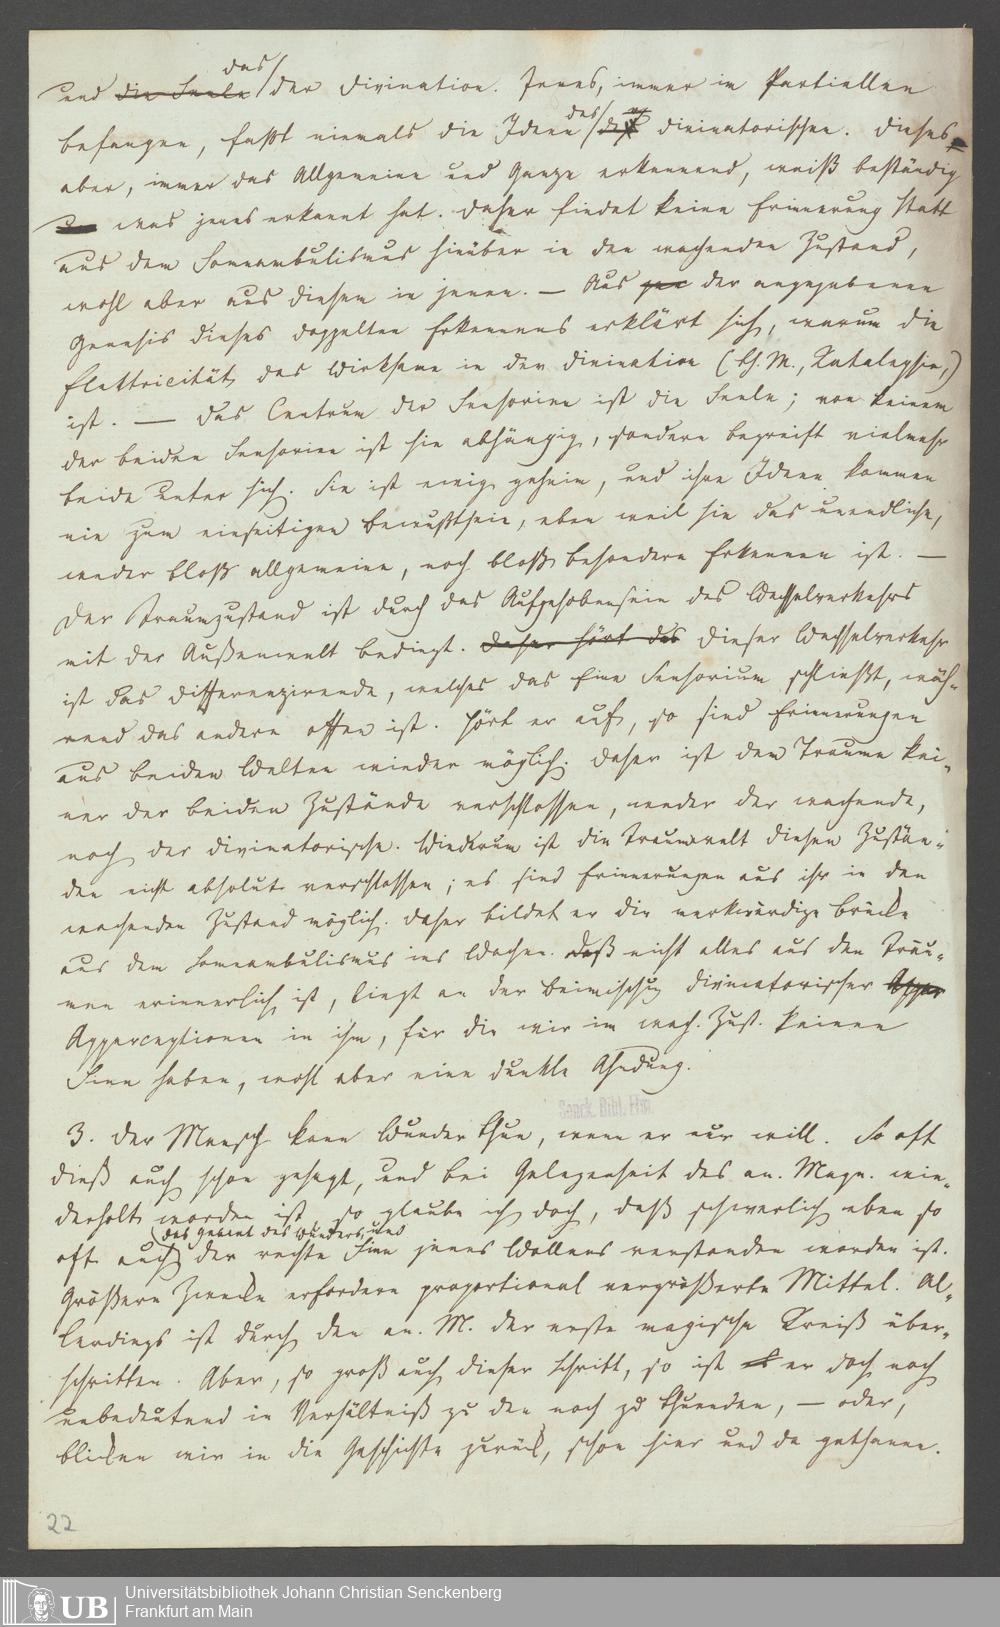 und die Seele das der Divination. Jenes, immer im Partiellen
befangen, faßt niemals die Ideen des divinatorischen. Dieses
aber, immer das Allgemeine und Ganze erkennend, weiß beständig
was jenes erkannt hat. Daher findet keine Erinnerung statt
aus dem Somnambulismus hinüber in den wachenden Zustand,
wohl aber aus diesem in jenen. — Aus der angegebenen
Genesis dieses doppelten Erkennens erklärt sich, warum die
Elektricität das Wirksame in der Divination (th. M., Katalepsie,)
ist. — Das Centrum der Sensorien ist die Seele; von keinem
der beiden Sensorien ist sie abhängig, sondern begreift vielmehr
beide unter sich. Sie ist ewig geheim, und ihre Ideen kommen
nie zum einseitigen Bewußtsein, eben weil sie das unendliche,
weder bloß allgemeine, noch bloß besondere Erkennen ist. —
Der Traumzustand ist durch das Aufgehobensein des Wechselverkehrs
mit der Außenwelt bedingt. Daher hört das Dieser Wechselverkehr
ist das differenzirende, welches das Eine Sensorium schließt, wäh-
rend das andere offen ist. Hört er auf, so sind Erinnerungen
aus beiden Welten wieder möglich. Daher ist dem Traume kei-
ner der beiden Zustände verschlossen, weder der wachende,
noch der divinatorische. Wiederum ist die Traumwelt diesen Zustän-
den nicht absolut verschlossen; es sind Erinnerungen aus ihr in den
wachenden Zustand möglich. Daher bildet er die merkwürdige Brücke
aus dem Somnambulismus ins Wachen. Daß nicht alles aus den Träu-
men erinnerlich ist, liegt an der Beimischung divinatorischer Apper
Apperceptionen in ihm, für die wir im wach. Zust. keinen
Sinn haben, wohl aber eine dunkle Ahndung.
Senck. Bibl. Ffm.
3. Der Mensch kann Wunder thun, wenn er nur will. So oft
dieß auch schon gesagt, und bei Gelegenheit des an. Magn. wie-
derholt worden ist, so glaube ich doch, daß schwerlich eben so
das Gebiet des Wunders, und
oft auch der rechte Sinn jenes Wollens verstanden worden ist.
Größere Zwecke erfordern proportional vergrößerte Mittel. Al-
lerdings ist durch den an. M. der erste magische Kreiß über-
schritten. Aber, so groß auch dieser Schritt, so ist er doch noch
unbedeutend in Verhältniß zu den noch zu thuenden, — oder,
blicken wir in die Geschichte zurück, schon hier und da gethanen.
22
UB
Universitätsbibliothek Johann Christian Senckenberg
Frankfurt am Main